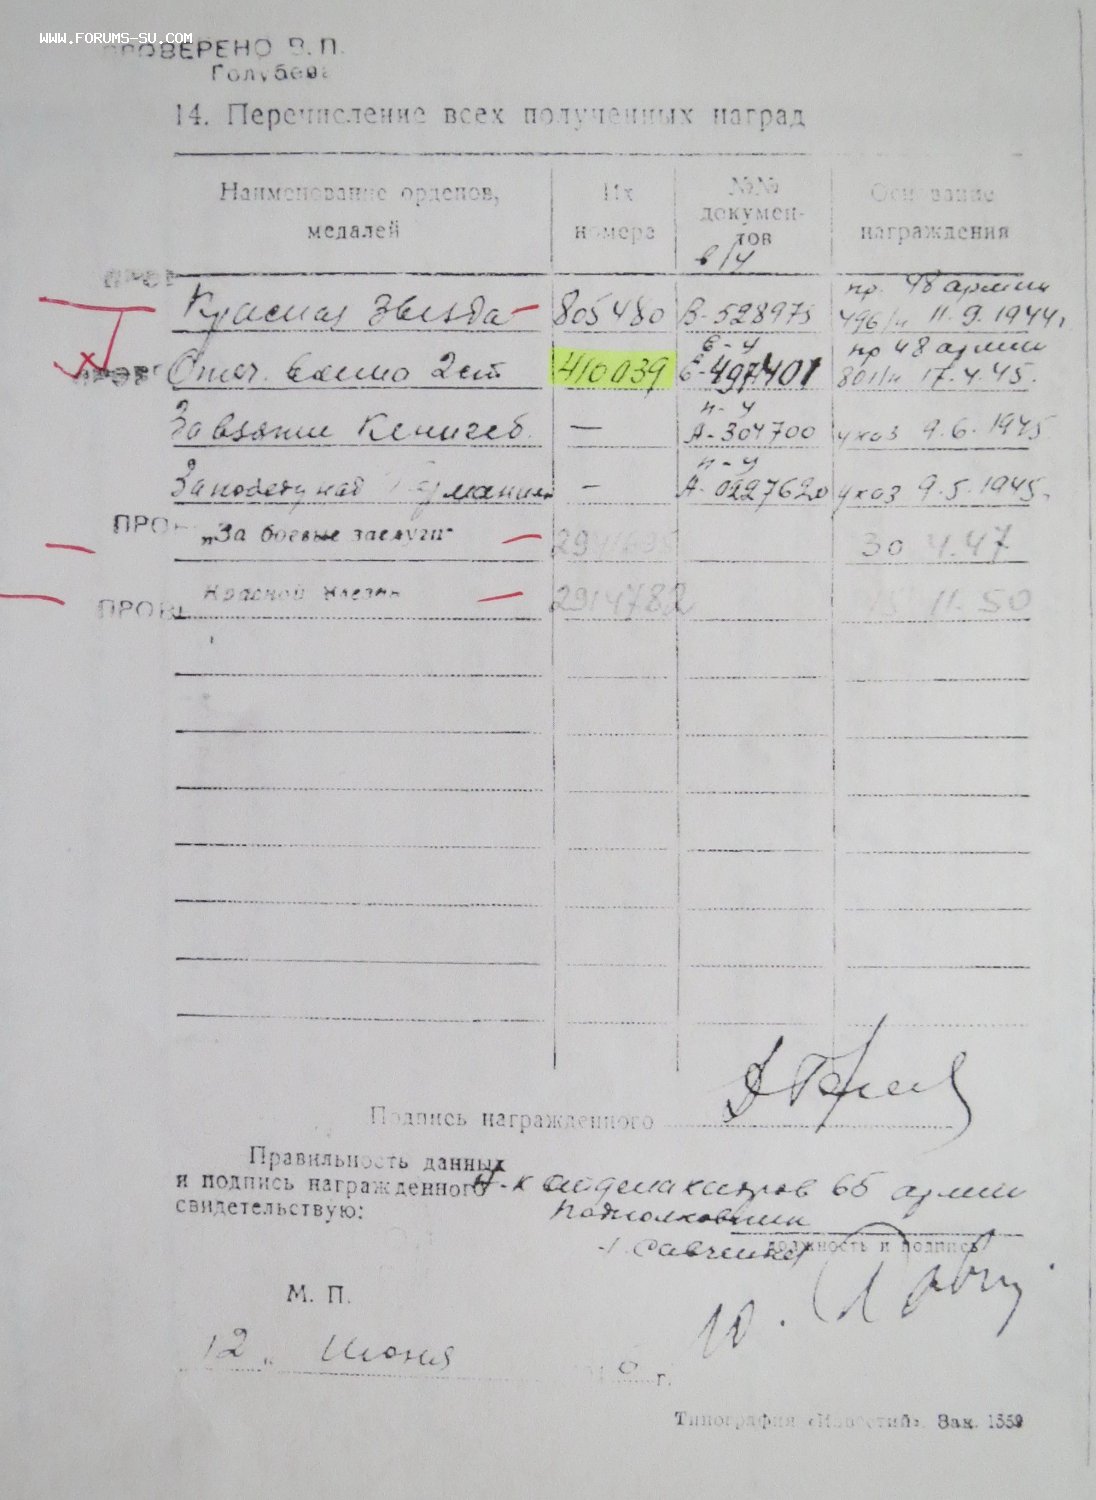 WWW.FORUMS-SU.COM
ПРОВЕРЕНО В. П.
Голубева
14. Перечисление всех полученных наград
Наименование орденов, медалей
Их номера
№№ документов
в/у
Основание награждения
Красная Звезда 805480 В-528975 пр. 48 армии 496/н 11.9.1944г.
Отеч. война 2 ст 410039 Б-497401 пр 48 армии 801/н 17.4.45.
За взятие Кенигсб. — А-304700 указ 9.6.1945
За победу над Германией — А-0227620 указ 9.5.1945.
ПРОВ
„За боевые заслуги" 30 4.47
Красной Звезды 2914782 11.50
ПРОВЕ
Подпись награжденного
Правильность данных
и подпись награжденного
свидетельствую:
65 армии
подполковник
Савченко
должность и подпись
М. П.
12 „ Июня 6 г.
Типография «Известий». Зак. 1559